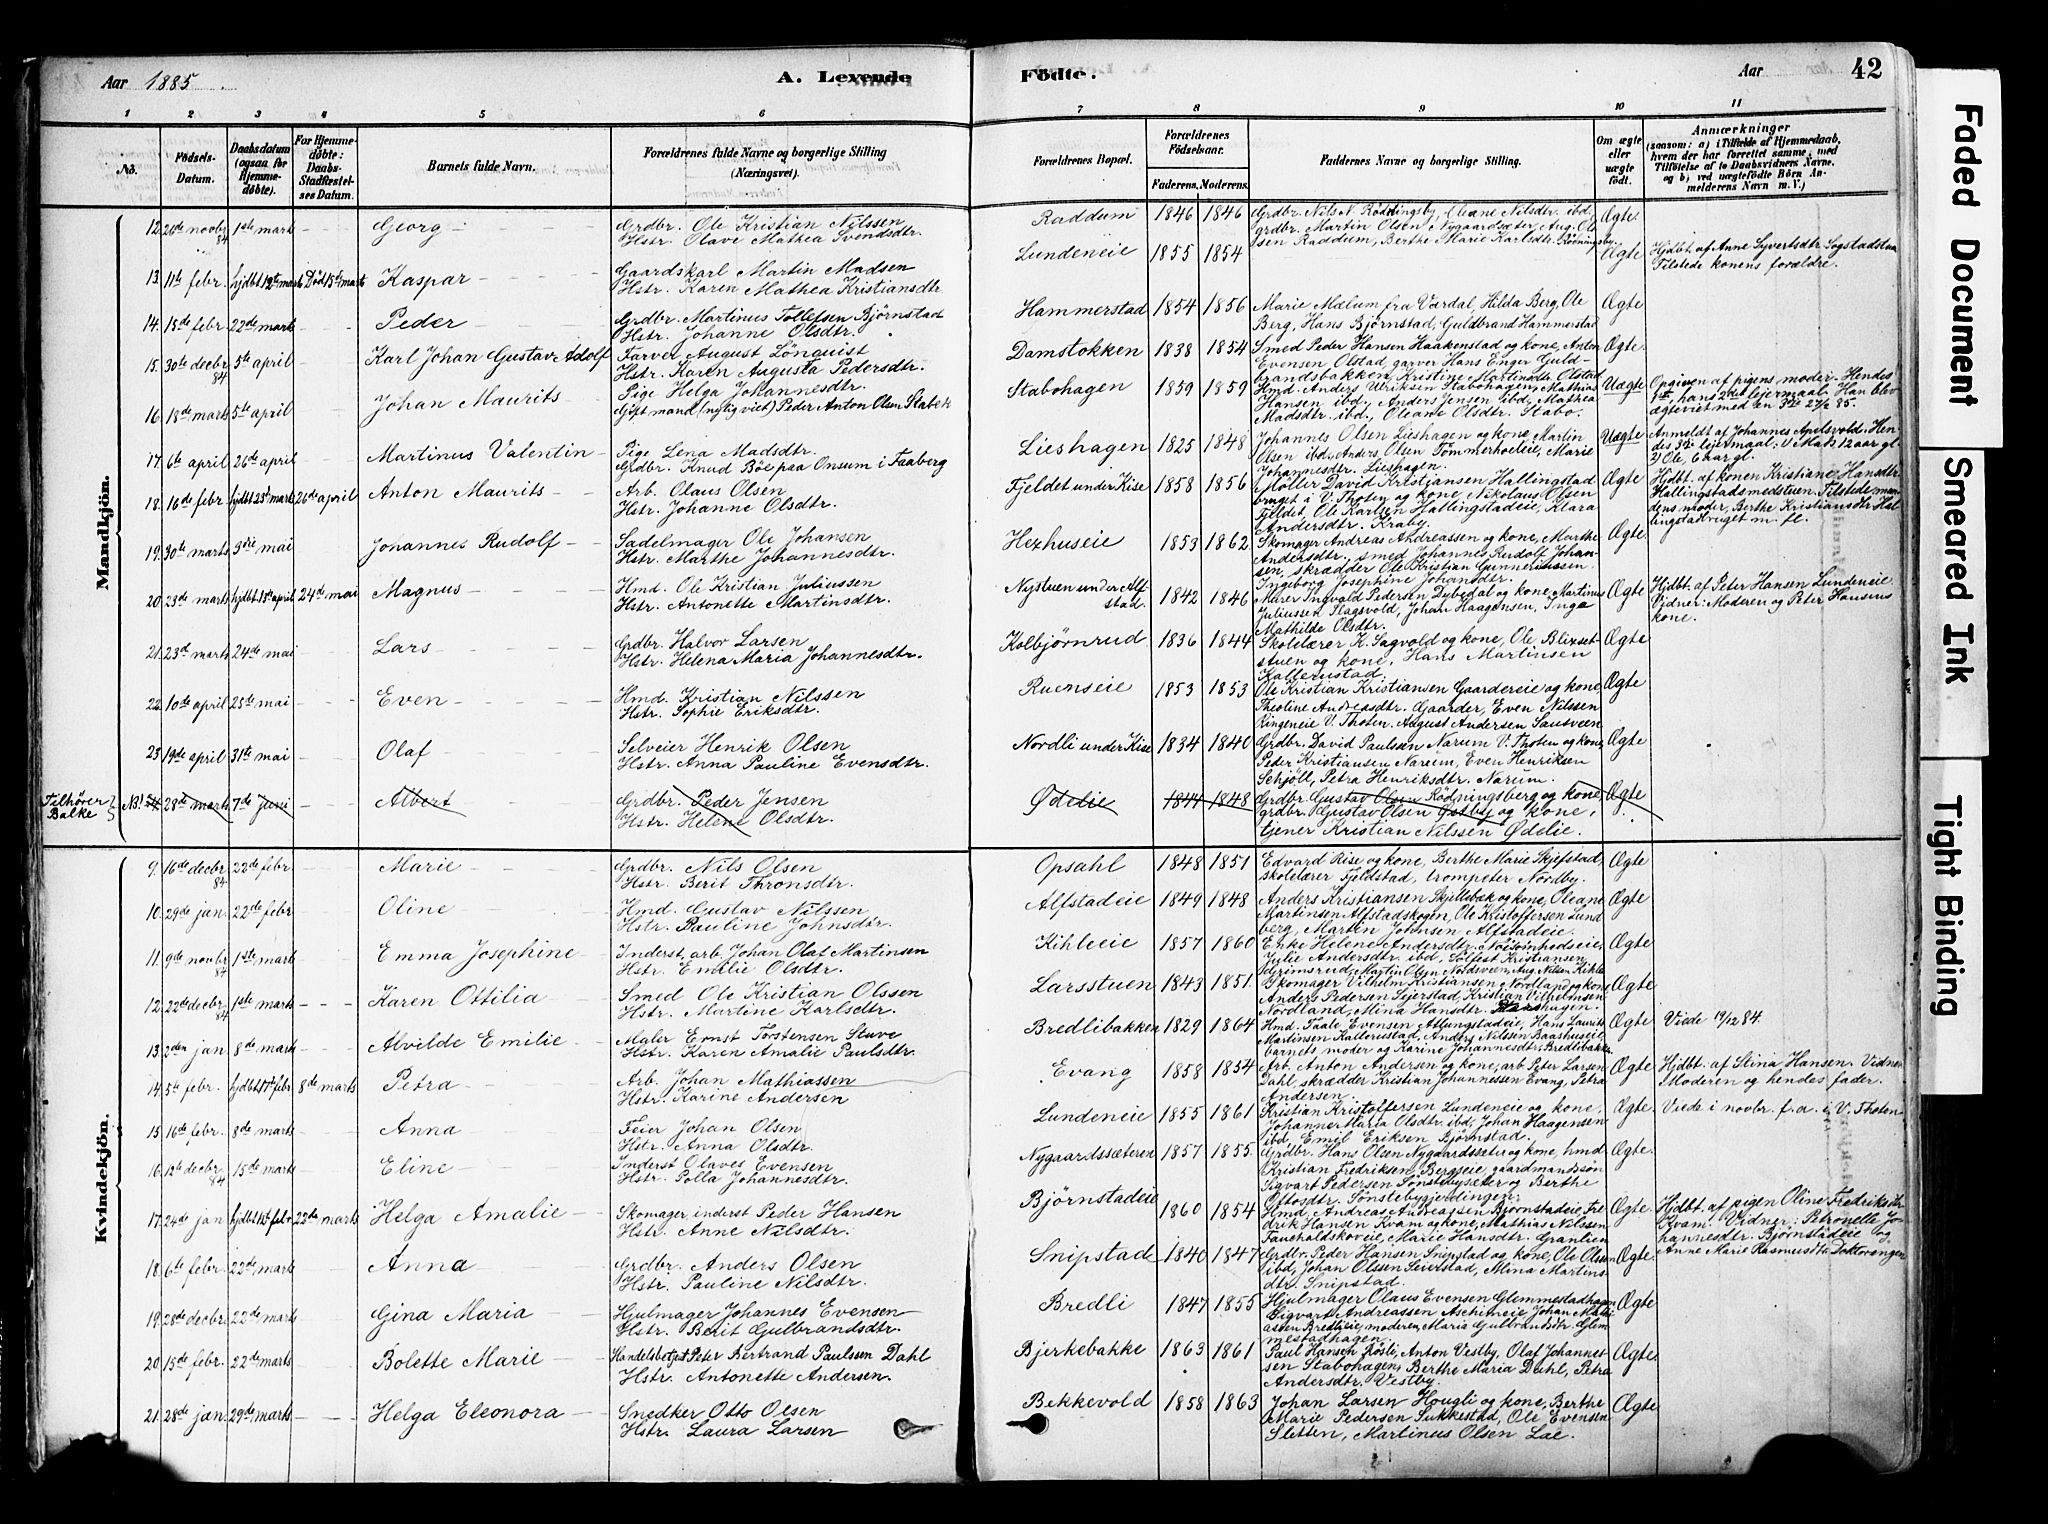 Aar 1885. A. Levende Födte. Aar 42
1 2 3 4 5 6 7 8 9 10 11
No. Födsels-Datum. Daabsdatum (ogsaa for Hjemme-döbte). For Hjemme-döbte: Daabs-Stadfæstelses Datum. Barnets fulde Navn. Forældrenes fulde Navne og borgerlige Stilling (Næringsvei). Forældrenes Bopæl. Forældrenes Födselsaar. Faderens. Moderens. Faddernes Navne og borgerlige Stilling. Om ægte eller uægte födt. Anmærkninger (saasom: a) i Tilfælde af Hjemmedaab, hvem der har forrettet samme, med Tilföielse af to Daabsvidners Navne. og b) ved uægtefödte Börn Anmelderens Navn m. V.)
Mandkjön.
12. novbr 84 1ste marts Georg Grdbr. Ole Kristian Nilssen Hstr. Olave Mathea Svendsdtr. Raddum 1846 1846 Grdbr. Nils N. Röddingsby, Oleane Nilsdtr. ibd. grdbr. Martin Olsen Nygaardsæter, Aug. Olsen Raddum, Berthe Marie Karlsdtr. Ægte
13. 11te febr. hjdbt 12te marts Död 15de marts Kaspar Gaardskarl Martin Madsen Hstr. Karen Mathea Kristiansdtr. Lundeneie 1855 1854 Ægte Hjdbt. af Anne Syvertsdtr. Tilstede konens forældre.
14. 15de febr 22de marts Peder Grdbr. Martinus Tollefsen Björnstad Hstr. Johanne Olsdtr. Hammerstad 1854 1856 Marie Mælum fra Vardal, Hilda Berg, Ole Berg, Hans Björnstad, Guldbrand Hammerstad Ægte
15. 30te decbr 84 5te april Karl Johan Gustav Adolf Farver August Lönquist Hstr. Karen Augusta Pedersdtr. Damstokken 1838 1854 Smed Peder Hansen Haakenstad og kone, Anton Evensen Olstad, garver Hans Enger Guldbrandsbakken, Kristine Martinsdtr. Olstad Ægte
16 18de marts 5te april Johan Maurits Pige Helga Johannesdtr. Gift mand (nylig viet) Peder Anton Olsen Stabek Stabohagen 1859 1859 Hmd. Anders Ulriksen Stabohagen, Mathias Hansen ibd., Anders Jensen ibd., Mathea Madsdtr. ibd., Oleane Olsdtr. Stabo. Uægte Opgiven af pigens moder. Hendes 1ste, hans 2det leiermaal. Han blev ægteviet med en 3die 27/2 85.
17. 6te april 26de april Martinus Valentin Pige Lena Madsdtr. Grdbr. Knud Böe paa Onsum i Faaberg Lieshagen 1825 1848 Johannes Olsen Lieshagen og kone, Martin Olsen ibd., Anders Olsen Tömmerhoeleie, Marie Johannesdtr. Lieshagen. Uægte Anmeldt af Johannes Apelsvold. Hendes 3die leiermaal: 1) Mads 12 aar gl. 2) Ole, 6 aar gl.
18. 16de febr. hjdbt 23de marts 26de april Anton Maurits Arb. Olaus Olsen Hstr. Johanne Olsdtr. Fjeldet under Kise 1858 1856 Möller David Kristjansen Hallingstadbruget i V. Thoten og kone, Nikolaus Olsen Fjeldet, Ole Karlsen Hallingstadeie, Klara Andersdtr. Kraby. Ægte Hjdbt. af konen Kristiane Hansdtr. Hallingstadsmedstuen. Tilstede mandens moder, Berthe Kristiansdtr Hallingstadbruget m. fl.
19. 30te marts 3die mai Johannes Rudolf Sadelmager Ole Johansen Hstr. Marthe Johannesdtr. Hexhuseie 1853 1862 Skomager Andreas Andreassen og kone, Marthe Andersdtr., smed Johannes Rudolf Johansen, skrædder Ole Kristian Gunneriussen. Ingeborg Josephine Johansdtr. Ægte
20. 23de marts hjdbt 13de april 24de mai Magnus Hmd. Ole Kristian Juliussen Hstr. Antonette Martinsdtr. Nystuen under Alfstad. 1842 1846 Murer Ingvald Pedersen Dybedal og kone, Martinus Juliussen Slagsvold, Johan Haagensen, Inga Mathilde Olsdtr. Ægte Hjdbt. af Peter Hansen Lundeneie Vidner: Moderen og Peter Hansens kone.
21. 23de marts 24de mai Lars Grdbr. Halvor Larsen Hstr. Helena Maria Johannesdtr. Kolbjörnrud 1836 1844 Skolelærer K. Sagvold og kone, Ole Blixsetstuen og kone, Hans Martinsen Kallerustad. Ægte
22. 10de april 25de mai Even Hmd. Kristian Nilssen Hstr. Sophie Eriksdtr. Ruenseie 1853 1853 Ole Kristian Kristiansen Gaardereie og kone, Theoline Andreasdtr. Gaarder, Even Nilssen Ringeneie V. Thoten, August Andersen Sautveen Ægte
23. 19de april 31te mai Olaf Selveier Henrik Olsen Hstr. Anna Pauline Evensdtr. Nordli under Kise 1834 1840 Grdbr. David Paulssen Narum V. Thoten og kone, Peder Kristiansen Narum, Even Henriksen Schjöll, Petra Henriksdtr. Narum. Ægte
Tilhörer Balke NB! 24. 28de marts 7de juni Albert Grdbr. Peder Jensen Hstr. Helene Olsdtr. Ödelie 1844 1848 Grdbr. Gustav Olsen Rödningsberg og kone, grdbr. Gustav Olsen Östby og kone, tjener Kristian Nilssen Ödelie. Ægte
Kvindekjön.
9. 16de decbr 84 22de febr. Marie Grdbr. Nils Olsen Hstr. Berit Thronsdtr. Opsahl 1848 1851 Edvard Kise og kone, Berthe Marie Skjefstad, skolelærer Fjeldstad, trompeter Nordby. Ægte
10. 29de jan. 22de febr Oline Hmd. Gustav Nilssen Hstr. Pauline Johnsdtr. Alfstadeie 1849 1848 Anders Kristiansen Skjellebæk og kone, Oleane Martinsen Alfstadskogen, Ole Kristoffersen Lundberg, Martin Johnsen Alfstadeie. Ægte
11. 9de novbr 84 1ste marts Emma Josephine Inderst, arb. Johan Olaf Martinsen Hstr. Emilie Olsdtr. Kihleeie 1857 1860 Enke Helene Andersdtr. Julie Andersdtr. ibd., Sölfest Kristiansen Grimsrud, Martin Olsen Nordsveen, Aug. Nilsen Kihle Ægte
12. 22de decbr 84 1ste marts Karen Ottilia Smed Ole Kristian Olssen Hstr. Martine Karlsdtr. Larsstuen 1843 1851. Skomager Vilhelm Kristiansen Nordland og kone, Anders Pedersen Seierstad, Kristian Vilhelmsen Nordland, Mina Hansdtr. Ægte
13. 2den jan 8de marts Alvilde Emilie Maler Ernst Torstensen Stuve Hstr. Karen Amalie Paulsdtr. Bredlibakken 1829 1864 Hmd. Faale Evensen Atlungstadeie, Hans Laurits Martinsen Kallerustad, Anders Nilssen Baarshuseie, barnets moder og Karine Johannesdtr. Bredlibakken Ægte Viede 19/12 84.
14. 5te febr. hjdbt 17de febr 8de marts Petra Arb. Johan Mathiassen Hstr. Karine Andersen Evang 1858 1854 Arb. Anton Andersen og kone, arb. Peter Larsen Dahl skrædder Kristian Johannessen Evang, Petra Andersen. Ægte Hjdbt. af Stina Hansen. Vidner Moderen og hendes fader.
15. 16de febr. 8de marts Anna Feier Johan Olsen Hstr. Anna Olsdtr. Lundeneie 1855 1861 Kristian Kristoffersen Lundeneie og kone, Johanne Maria Olsdtr. ibd., Johan Haagensen ibd., Emil Eriksen Björnstad. Ægte Viede i novbr. f. a. i V. Thoten
16. 12te decbr 84 15de marts Eline Inderst Olaves Evensen Hstr. Polla Johannesdtr. Nygaardssæteren 1857 1855. Grdbr. Hans Olsen Nygaardssetre og kone, hmd. Kristian Fredriksen, Bergseie, gaardmandssön Sigvart Pedersen Sönstebysæter og Berthe Ottosdtr. Sönstebygjerdingen. Ægte
17. 24de jan hjdbt 1ste febr 22de marts Helga Amalie Skomager, inderst Peder Hansen Hstr. Anne Nilsdtr. Björnstadeie 1860 1854 Hmd. Andreas Andreassen Björnstadeie, Fredrik Hansen Kvam og kone, Mathias Nilssen Faucholdskoveie, Marie Hansdtr. Granlien Ægte. Hjdbt. af pigen Oline Fredriksdtr. Kvam. Vidner: Petronelle Johannesdtr. Björnstadeie og Anne Marie Rasmusdtr. Doktorengen
18. 6te febr. 22de marts Anna Grdbr. Anders Olsen Hstr. Pauline Nilsdtr. Snipstad 1840 1847 Grdbr. Peder Hansen Snipstad og kone, Ole Olsen ibd., Johan Olssen Seierstad, Mina Martinsdtr. Snipstad. Ægte.
19. 28de decbr. 22de marts Gina Maria Hjulmager Johannes Evensen Hstr. Berit Gulbrandsdtr. Bredli 1847 1855 Hjulmager Olaus Evensen Glemmestadhagen, Sigvart Andreassen Aschimeie, Johan Mathiassen Bredlieie, moderen, Maria Gulbrandsdtr. Glemmestadhagen. Ægte
20. 15de febr. 22de marts Bolette Marie Handelsbetjent Peter Bertrand Paulssen Dahl Hstr. Antonette Andersen. Bjerkebakke 1863 1861 Paul Hansen Rösli, Anton Vestby, Olaf Johannessen Stabohagen, Berthe Maria Dahl, Petra Andersdtr. Vestby. Ægte.
21. 28de jan. 29de marts Helga Eleonora Snedker Otto Olsen Hstr. Laura Larsen Bekkevold 1858 1863 Johan Larsen Hougli og kone, Berthe Marie Pedersen Sukkestad, Ole Evensen Sletten, Martinus Olsen Lae. Ægte
Faded Document
Smeared Ink
Tight Binding